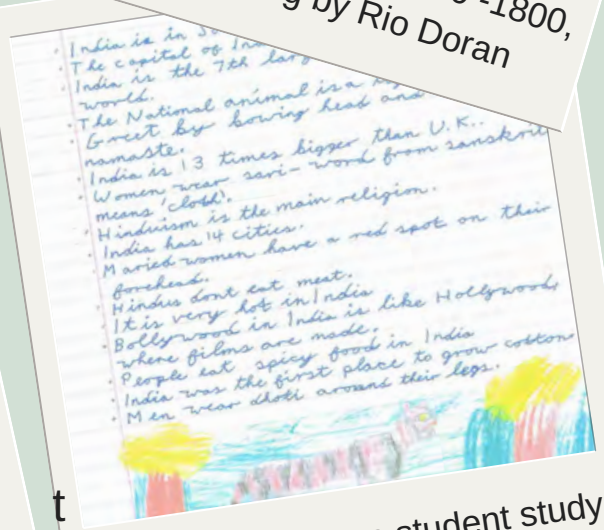 -1800,
by Rio Doran
India is in
The capital of
India is the 7th
world.
The National animal is a
Greet by bowing head and
namaste.
India is 13 times bigger than U.K..
Women wear sari- word from sanskrit
means 'cloth'.
Hinduism is the main religion.
India has 14 cities.
Maried women have a red spot on their
forehead.
Hindus dont eat meat.
It is very hot in India
Bollywood in India is like Hollywood,
where films are made.
People eat spicy food in India
India was the first place to grow cotton
Men wear dhoti around their legs.
t
student study